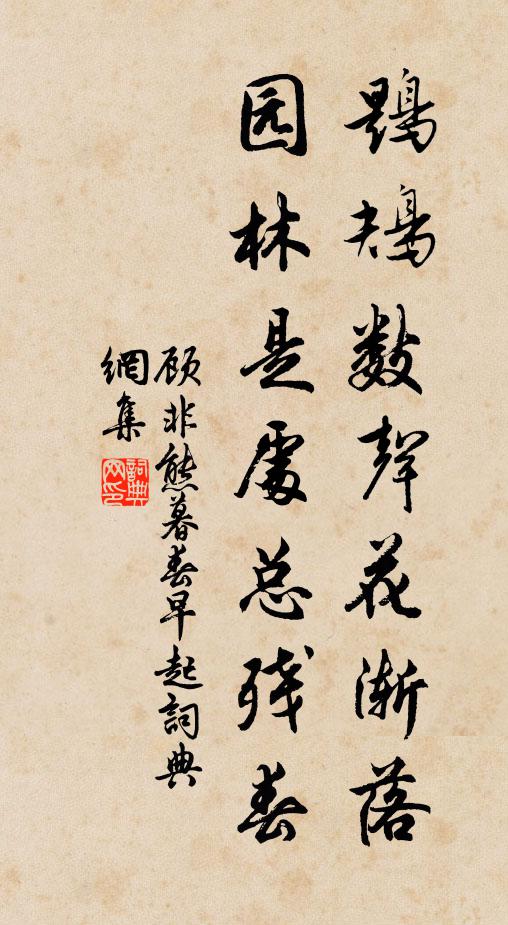 鶗鳺数聲花渐落
园林是處总残春
顾非熊暮春早起詞典
網集
詞典网印